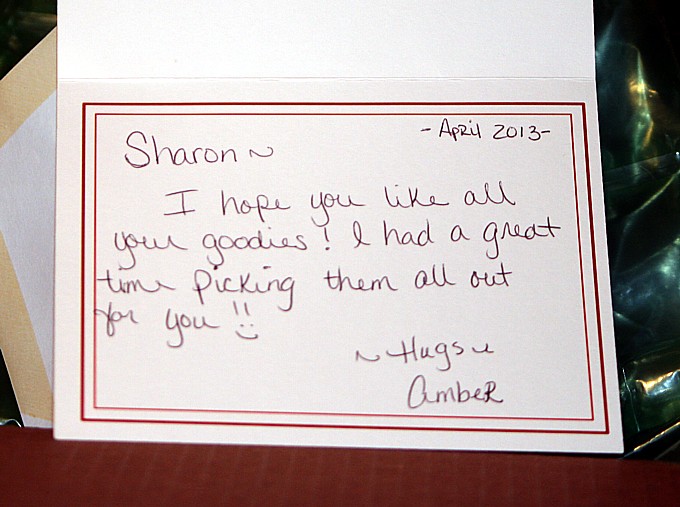 -April 2013-
Sharon ~
I hope you like all
your goodies! I had a great
time picking them all out
for you !!
~ Hugs ~
Amber